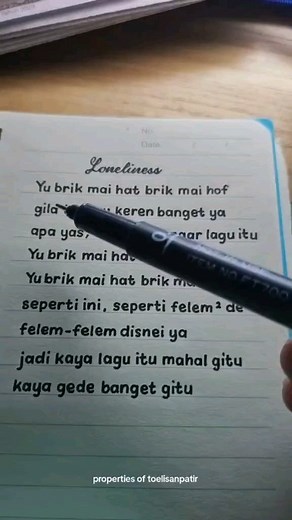 No.
Date
Loneliness
Yu brik mai hat brik mai hof
gila keren banget ya
apa yas, lagu itu
Yu brik mai hat
Yu brik mai hat brik
seperti ini, seperti felem² de
felem-felem disnei ya
jadi kaya lagu itu mahal gitu
kaya gede banget gitu
properties of toelisanpatir